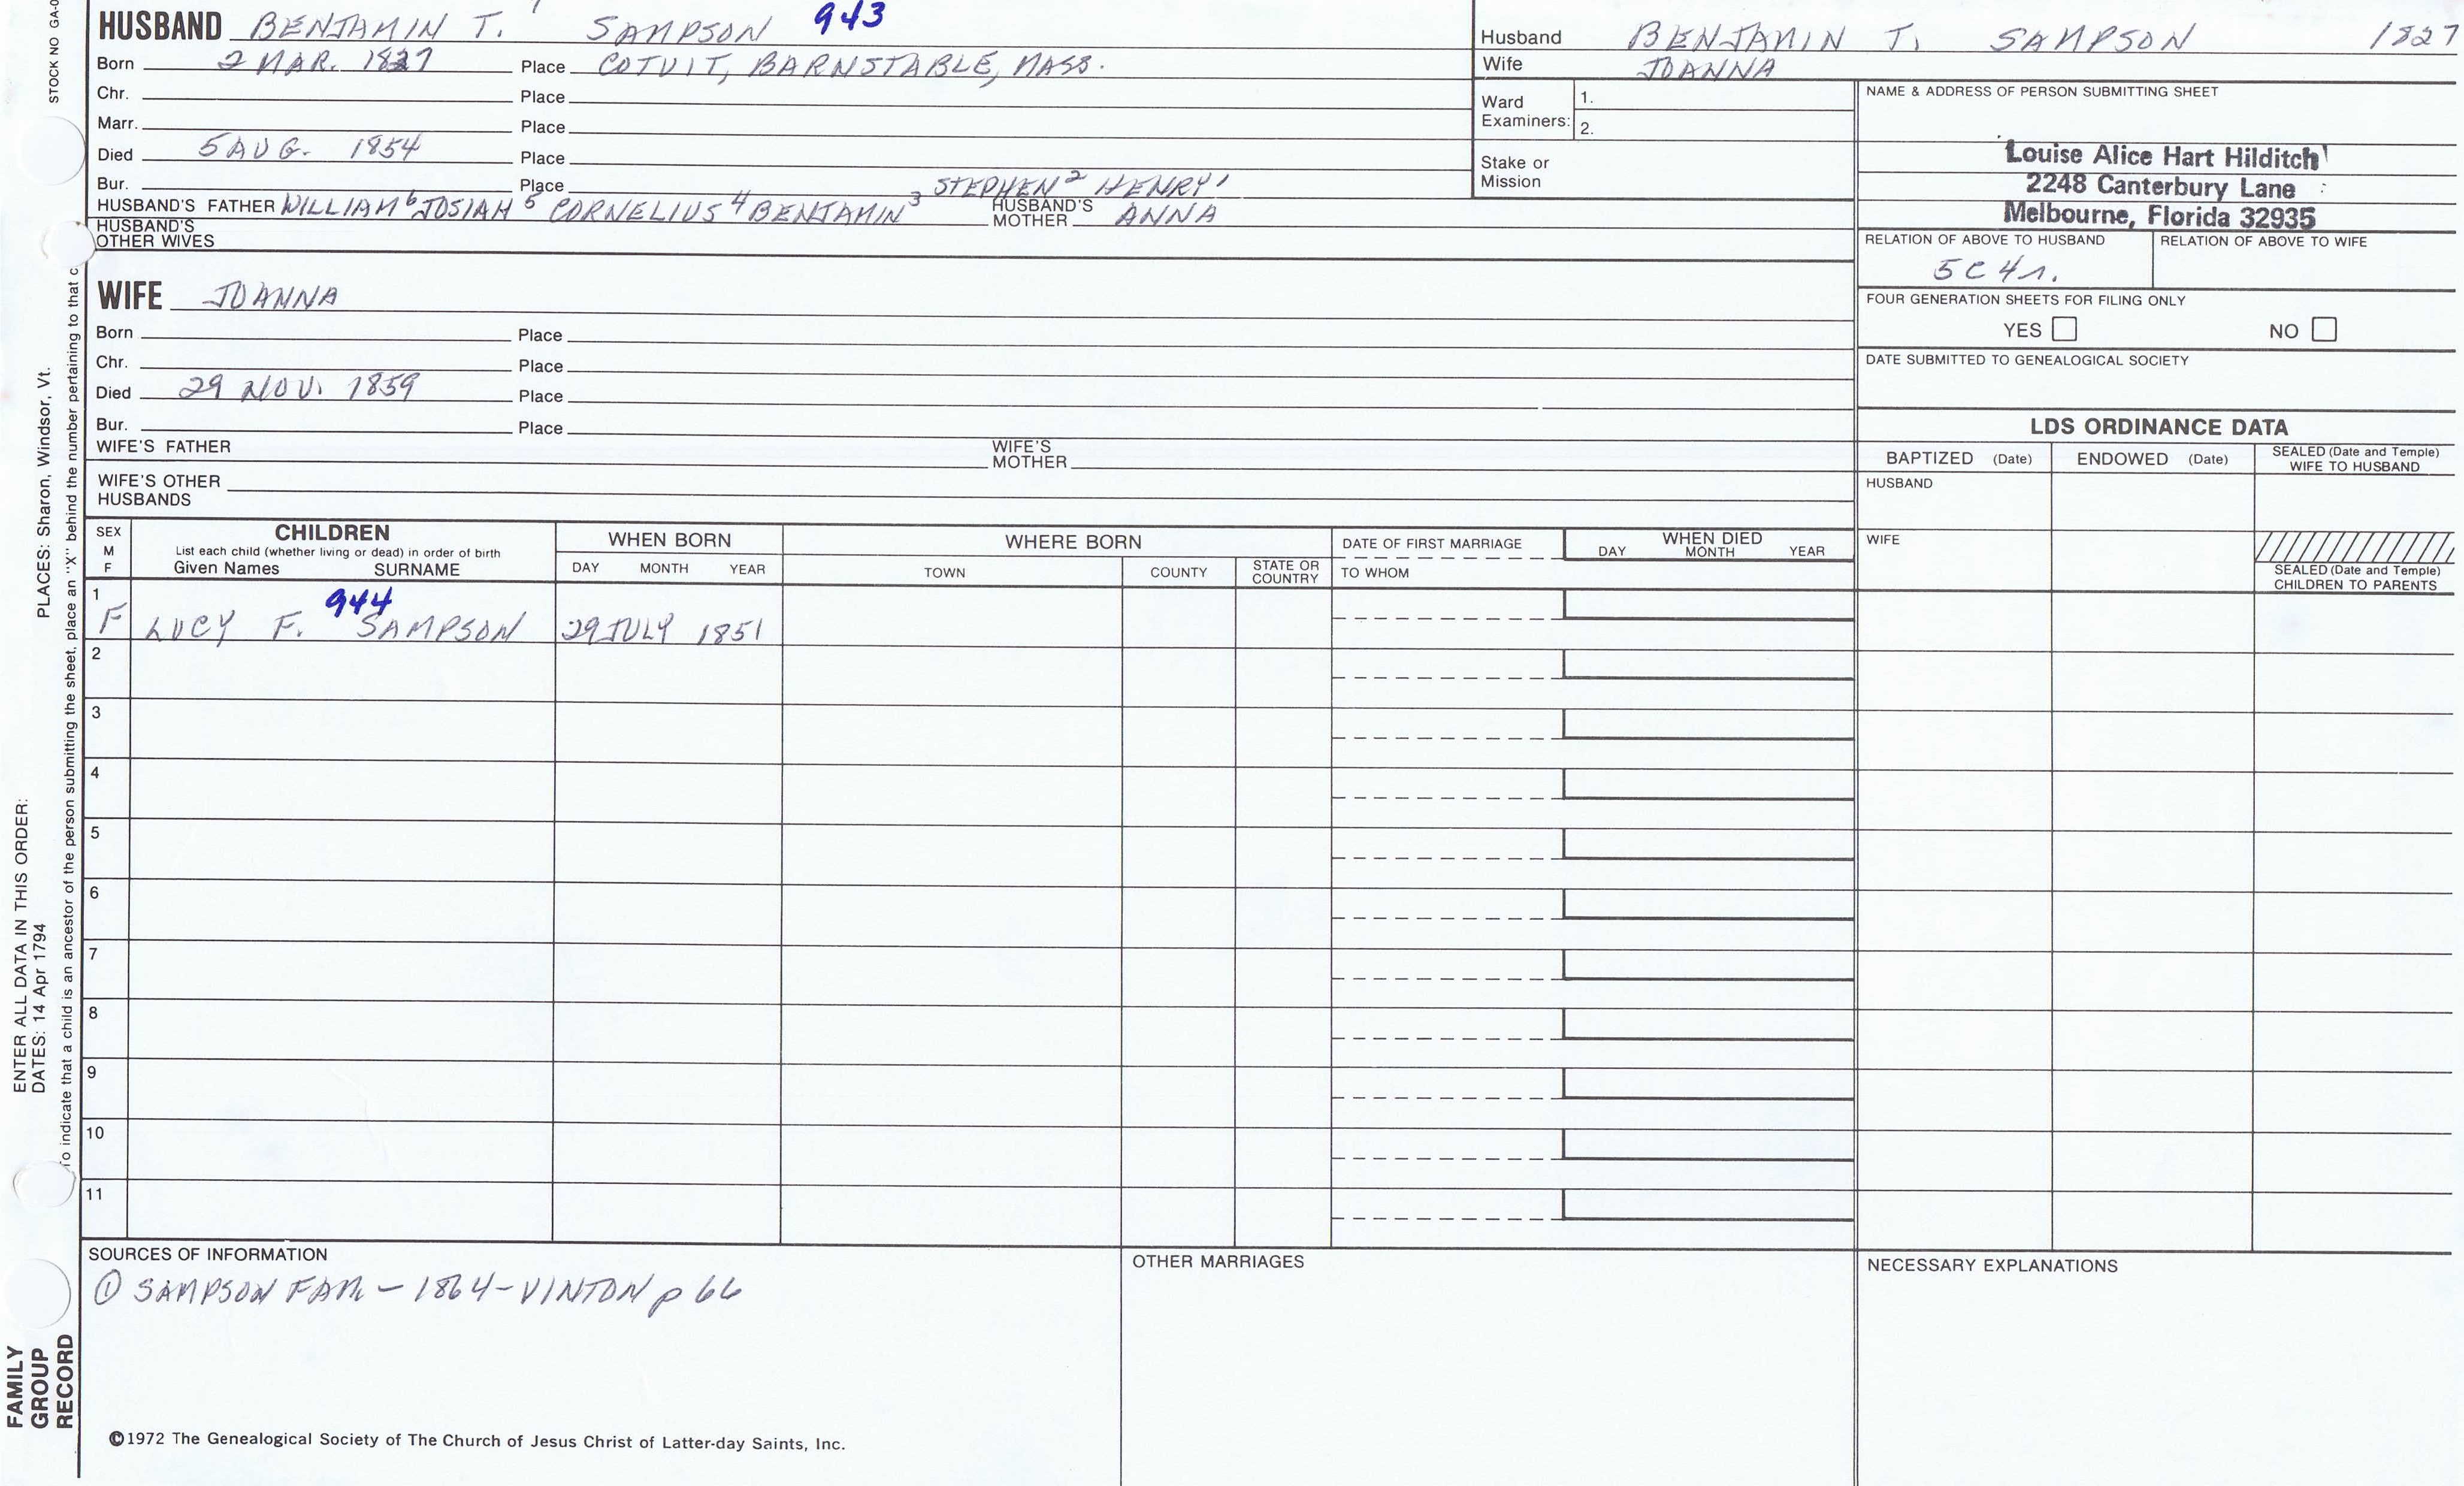 STOCK NO GA-0
HUSBAND BENJAMIN T. SAMPSON 943
Born 2 MAR. 1827 Place COTUIT, BARNSTABLE, MASS.
Chr. Place
Marr. Place
Died 5 AUG. 1854 Place
Bur. Place STEPHEN2 HENRY1
HUSBAND'S FATHER WILLIAM6 JOSIAH5 CORNELIUS4 BENJAMIN3 HUSBAND'S MOTHER ANNA
HUSBAND'S OTHER WIVES
Husband BENJAMIN T. SAMPSON 1827
Wife JOANNA
Ward Examiners: 1.
2.
Stake or Mission
NAME & ADDRESS OF PERSON SUBMITTING SHEET
Louise Alice Hart Hilditch
2248 Canterbury Lane
Melbourne, Florida 32935
RELATION OF ABOVE TO HUSBAND RELATION OF ABOVE TO WIFE
5C4r.
FOUR GENERATION SHEETS FOR FILING ONLY
YES NO
DATE SUBMITTED TO GENEALOGICAL SOCIETY
WIFE JOANNA
Born Place
Chr. Place
Died 29 NOV. 1859 Place
Bur. Place
WIFE'S FATHER WIFE'S MOTHER
WIFE'S OTHER HUSBANDS
LDS ORDINANCE DATA
BAPTIZED (Date) ENDOWED (Date) SEALED (Date and Temple) WIFE TO HUSBAND
HUSBAND
WIFE
SEALED (Date and Temple) CHILDREN TO PARENTS
SEX M F
CHILDREN
List each child (whether living or dead) in order of birth
Given Names SURNAME
WHEN BORN
DAY MONTH YEAR
WHERE BORN
TOWN COUNTY STATE OR COUNTRY
DATE OF FIRST MARRIAGE
TO WHOM
WHEN DIED
DAY MONTH YEAR
1 944
F LUCY F. SAMPSON 29 JULY 1851
2
3
4
5
6
7
8
9
10
11
SOURCES OF INFORMATION
① SAMPSON FAM – 1864 – VINTON p 66
OTHER MARRIAGES
NECESSARY EXPLANATIONS
©1972 The Genealogical Society of The Church of Jesus Christ of Latter-day Saints, Inc.
ENTER ALL DATA IN THIS ORDER:
DATES: 14 Apr 1794 PLACES: Sharon, Windsor, Vt.
To indicate that a child is an ancestor of the person submitting the sheet, place an "X" behind the number pertaining to that c
FAMILY
GROUP
RECORD